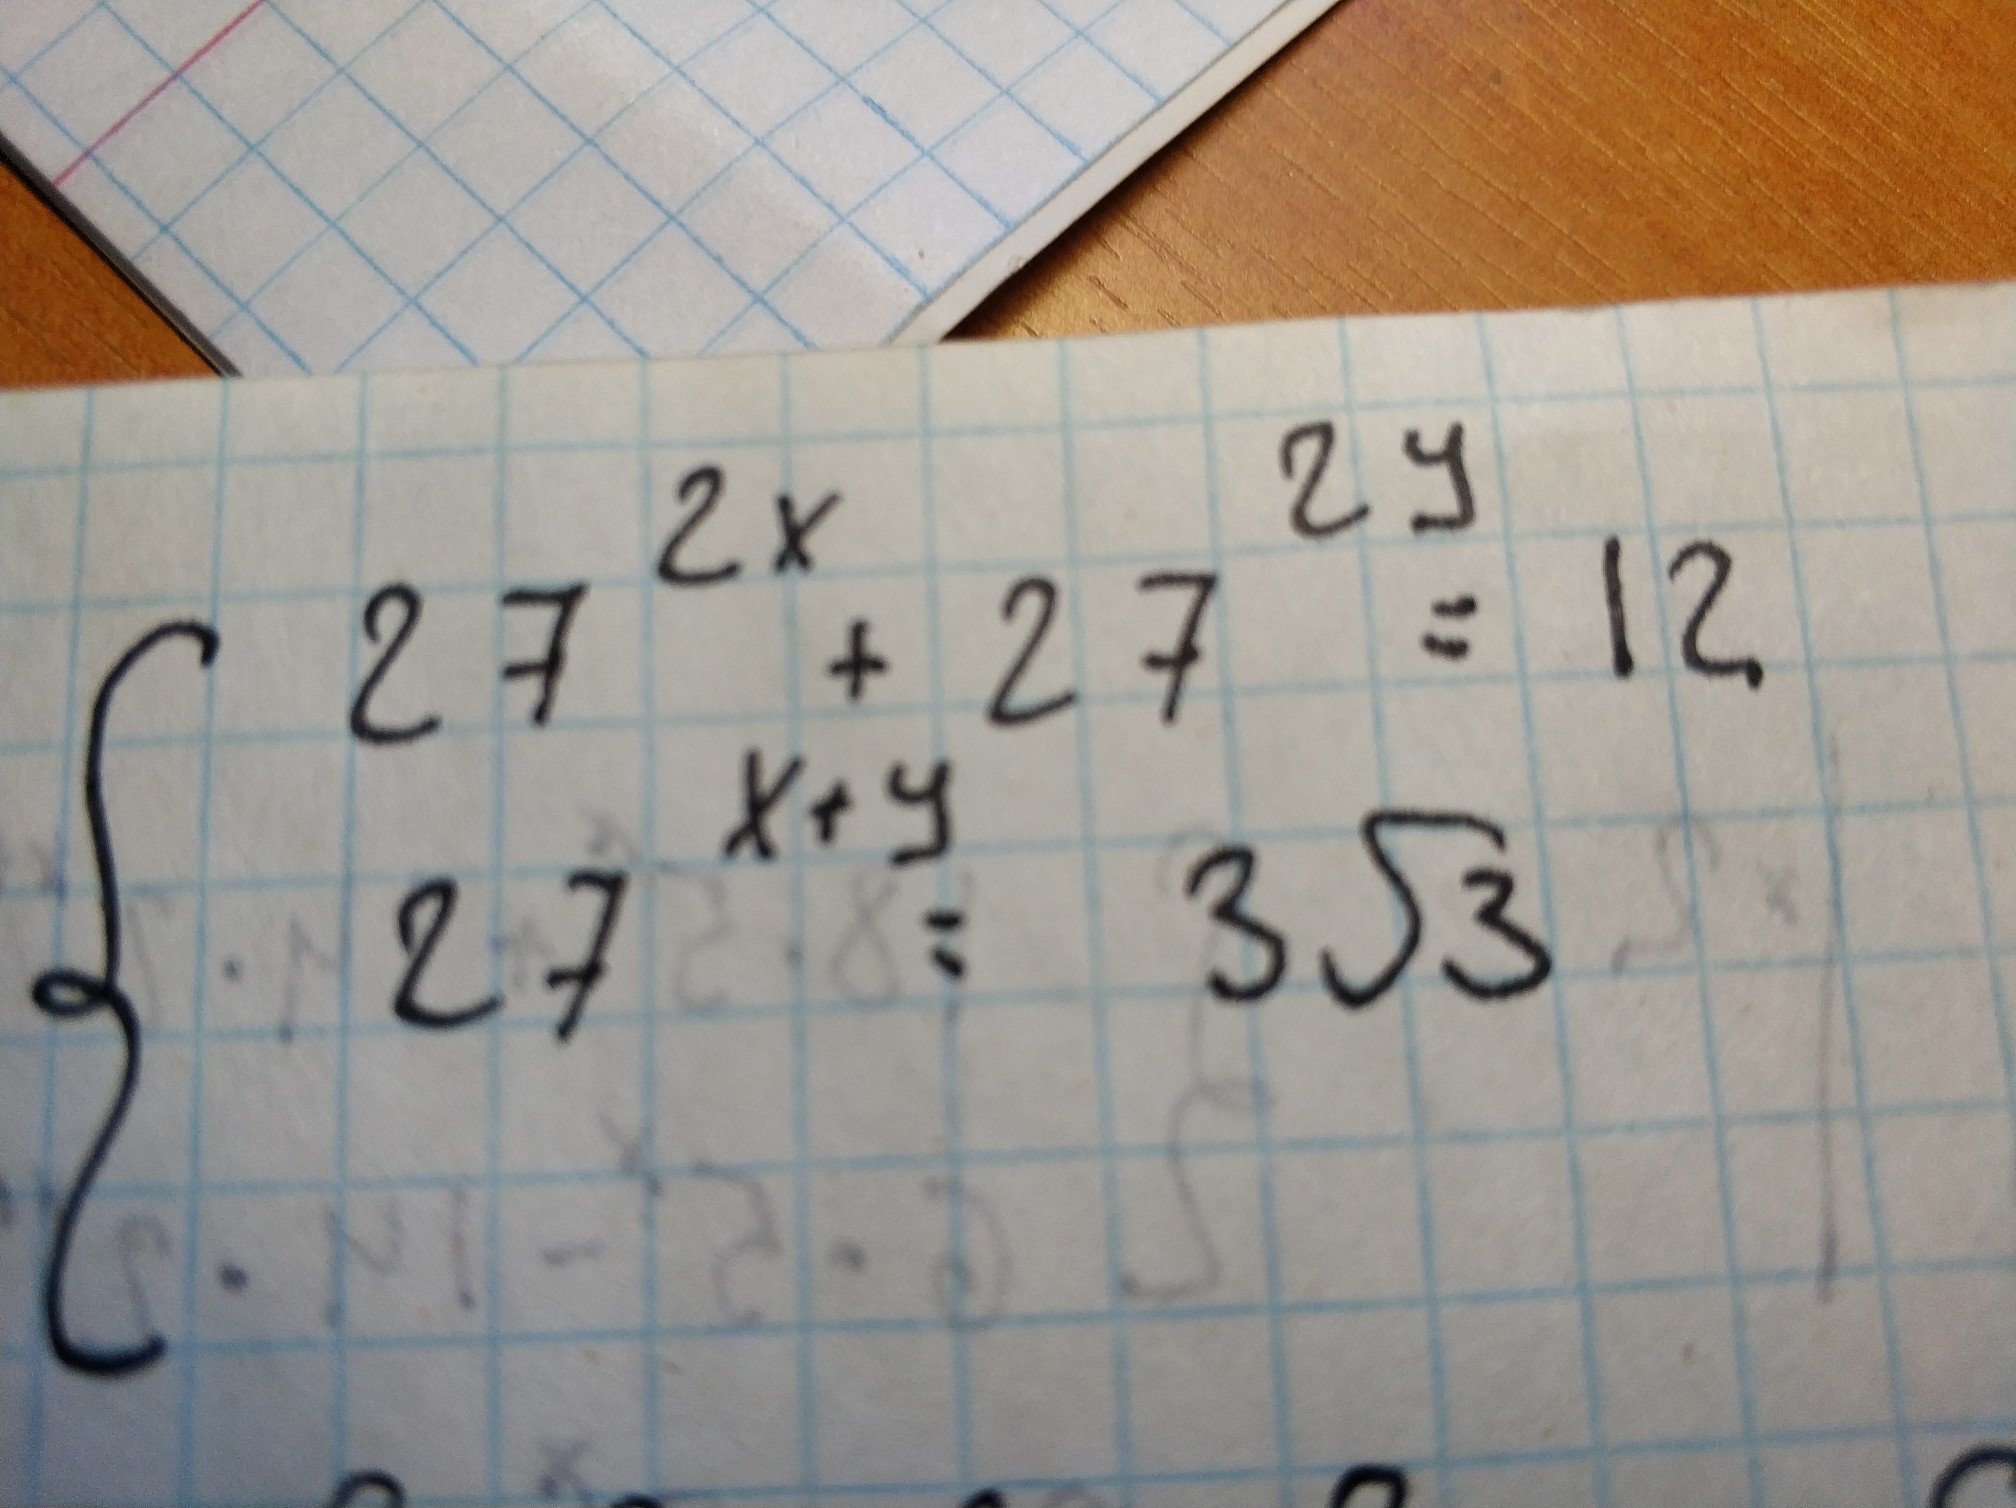 27^{2x} + 27^{2y} = 12
27^{x+y} = 3√3